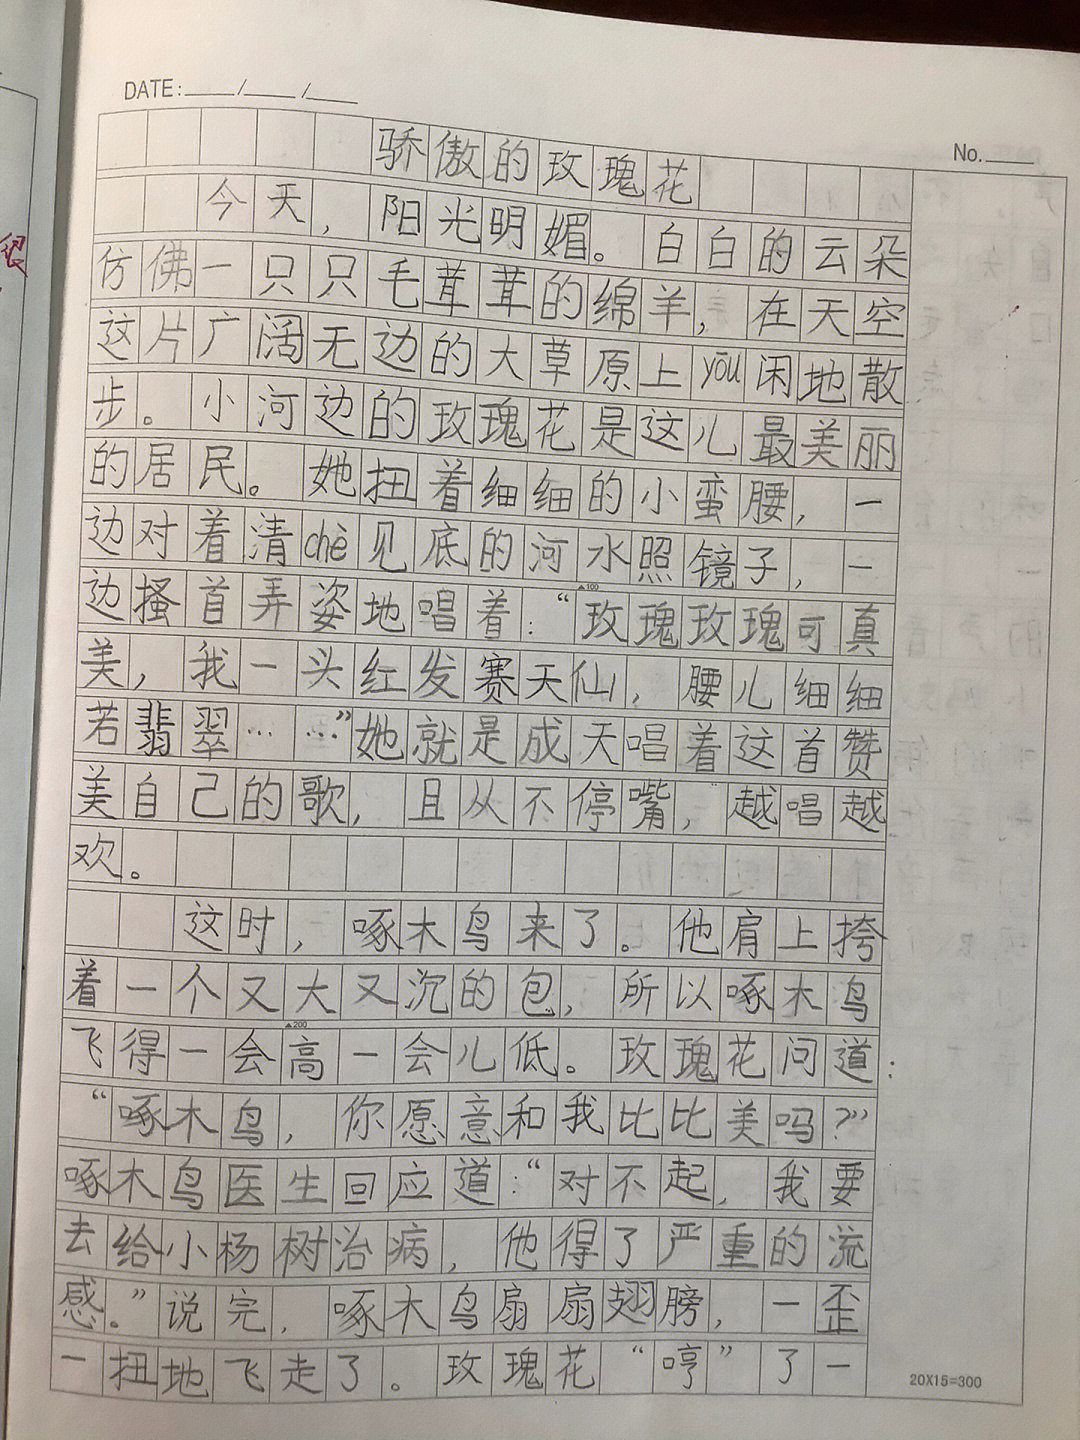 DATE:____/____/____
No.____
骄傲的玫瑰花
今天，阳光明媚。白白的云朵
仿佛一只只毛茸茸的绵羊，在天空
这片广阔无边的大草原上yōu闲地散
步。小河边的玫瑰花是这儿最美丽
的居民。她扭着细细的小蛮腰，一
边对着清chè见底的河水照镜子，一
▲100
边搔首弄姿地唱着：“玫瑰玫瑰可真
美，我一头红发赛天仙，腰儿细细
若翡翠……”她就是成天唱着这首赞
美自己的歌，且从不停嘴，越唱越
欢。
这时，啄木鸟来了。他肩上挎
着一个又大又沉的包，所以啄木鸟
▲200
飞得一会高一会儿低。玫瑰花问道：
“啄木鸟，你愿意和我比比美吗？”
啄木鸟医生回应道：“对不起，我要
去给小杨树治病，他得了严重的流
感。”说完，啄木鸟扇扇翅膀，一歪
一扭地飞走了。玫瑰花“哼”了一
20X15=300